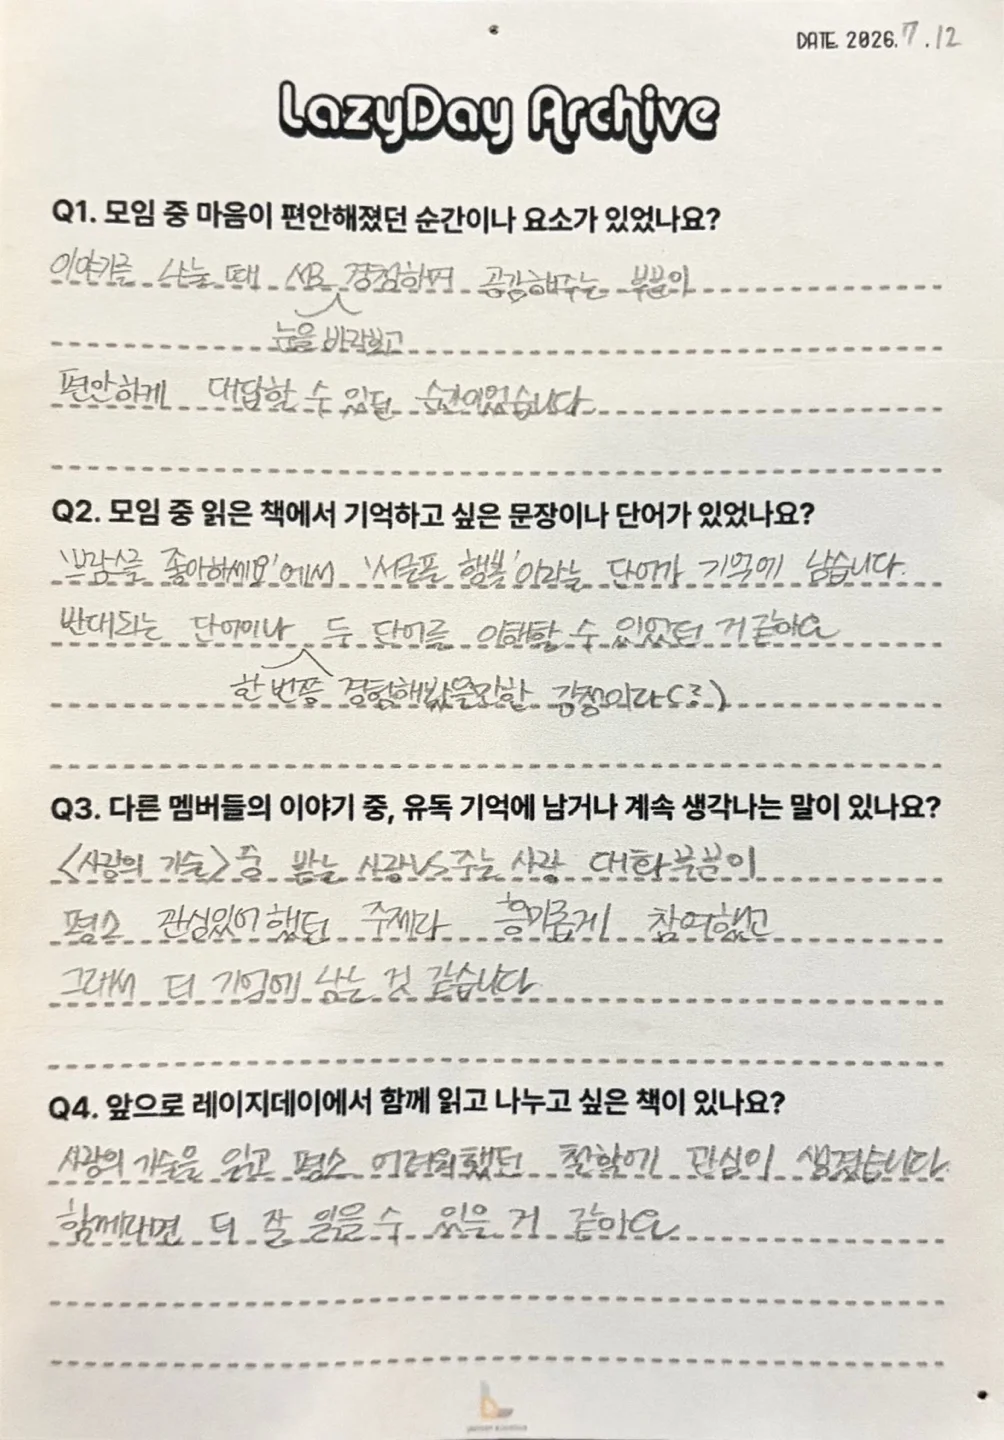 DATE. 2026. 7. 12
LazyDay Archive
Q1. 모임 중 마음이 편안해졌던 순간이나 요소가 있었나요?
이야기를 나눌 때 서로 경청하며 공감해주는 부분이
눈을 바라보고
편안하게 대답할 수 있던 순간이었습니다.
Q2. 모임 중 읽은 책에서 기억하고 싶은 문장이나 단어가 있었나요?
'브람스를 좋아하세요'에서 '서글픈 행복'이라는 단어가 기억에 남습니다.
반대되는 단어이나 두 단어를 이해할 수 있었던 거 같아요
한 번쯤 경험해봤을만한 감정이라(3)
Q3. 다른 멤버들의 이야기 중, 유독 기억에 남거나 계속 생각나는 말이 있나요?
<사랑의 기술> 중 받는 사랑 VS 주는 사랑 대화 부분이
평소 관심있어 했던 주제라 흥미롭게 참여했고
그래서 더 기억에 남는 것 같습니다
Q4. 앞으로 레이지데이에서 함께 읽고 나누고 싶은 책이 있나요?
사랑의 기술을 읽고 평소 어려워했던 철학에 관심이 생겼습니다.
함께라면 더 잘 읽을 수 있을 거 같아요